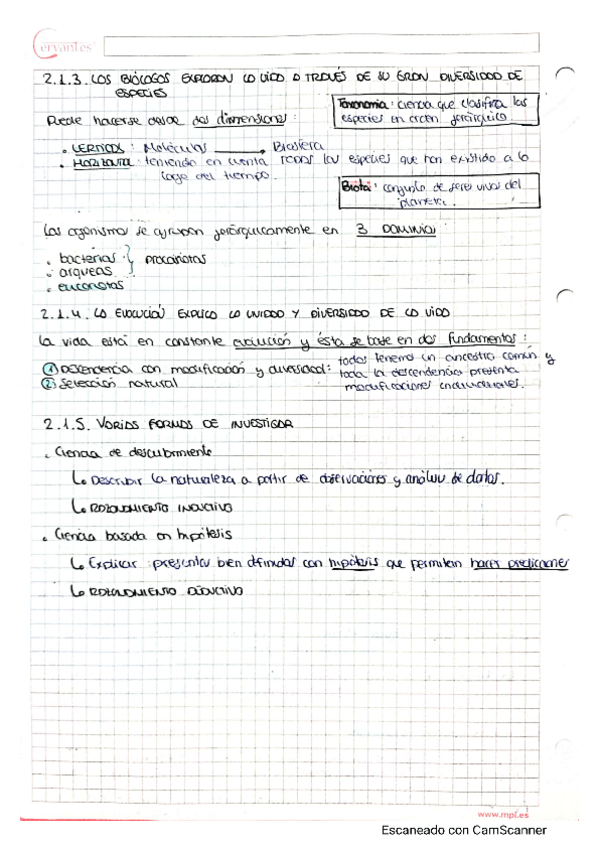 Cervantes
2.1.3. LOS BIÓLOGOS EXPLORAN LA VIDA A TRAVÉS DE SU GRAN DIVERSIDAD DE
ESPECIES
Taxonomía: ciencia que clasifica las
especies en orden jerárquico.
Puede hacerse desde dos dimensiones:
• VERTICAL: Moléculas → Biosfera
• HORIZONTAL: teniendo en cuenta todas las especies que han existido a lo
largo del tiempo.
Biota: conjunto de seres vivos del
planeta.
Los organismos se agrupan jerárquicamente en 3 DOMINIOS
• bacterias } procariotas
• arqueas
• eucariotas
2.1.4. LA EVOLUCIÓN EXPLICA LA UNIDAD Y DIVERSIDAD DE LA VIDA
La vida está en constante evolución y ésta se basa en dos fundamentos:
① Descendencia con modificación y diversidad: todos tenemos un ancestro común y
toda la descendencia presenta
② Selección natural
modificaciones individuales.
2.1.5. VARIAS FORMAS DE INVESTIGAR
• Ciencia de descubrimiento
↳ Describir la naturaleza a partir de observaciones y análisis de datos.
↳ RAZONAMIENTO INDUCTIVO
• Ciencia basada en hipótesis
↳ Explicar: preguntas bien definidas con hipótesis que permiten hacer predicciones
↳ RAZONAMIENTO DEDUCTIVO
www.mpl.es
Escaneado con CamScanner